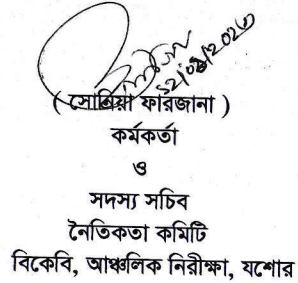 ১২/০৪/২০২৩
( সোনিয়া ফারজানা )
কর্মকর্তা
ও
সদস্য সচিব
নৈতিকতা কমিটি
বিকেবি, আঞ্চলিক নিরীক্ষা, যশোর